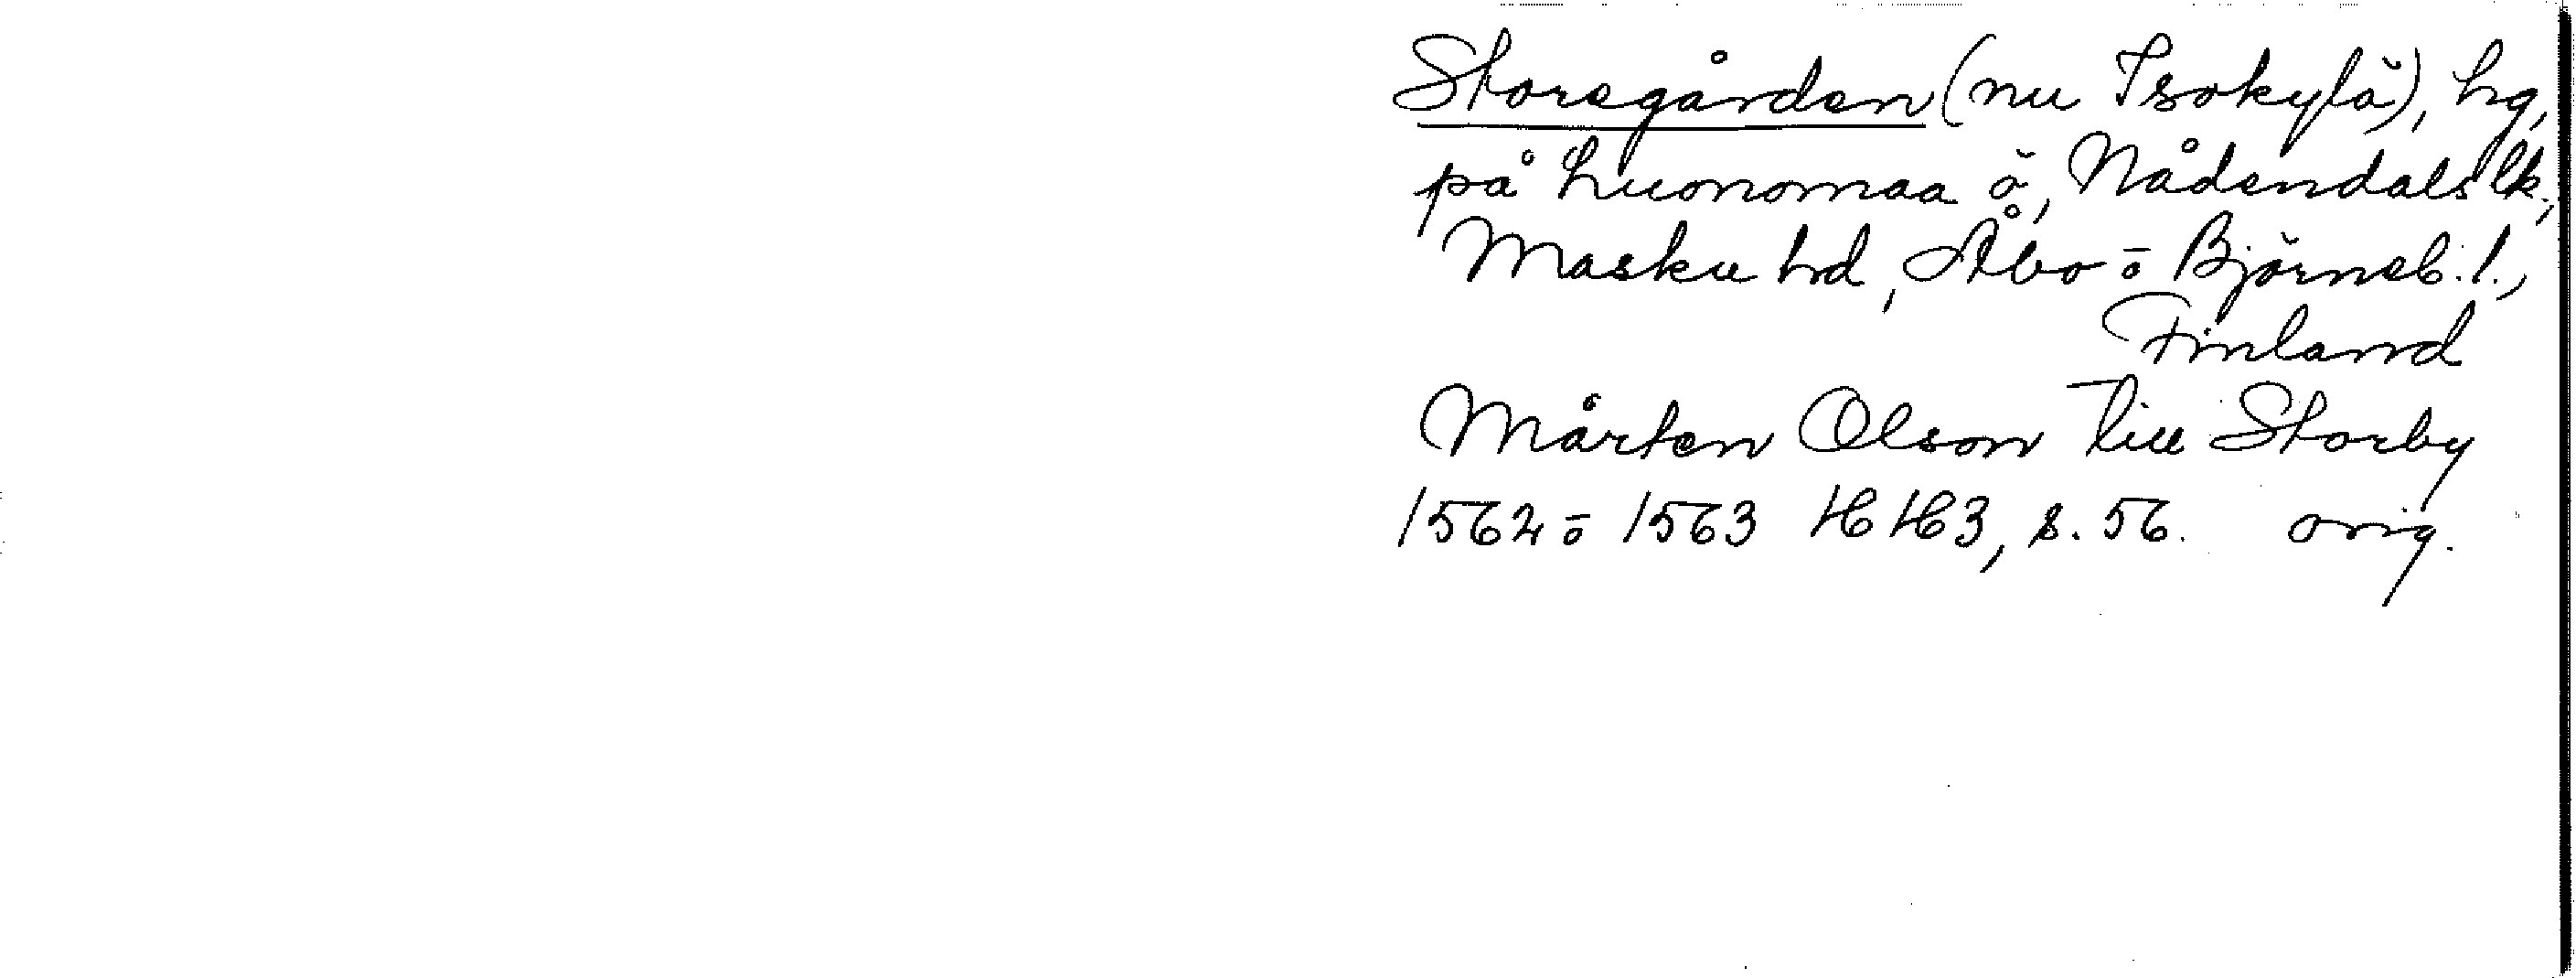 Storegården (nu Isokylä), hg,
på Luonomaa ö, Nådendals lk.,
Masku hd, Åbo o Björneb. l.,
Finland
Mårten Olson till Storby
1562 o 1563 HH3, s. 56. orig.